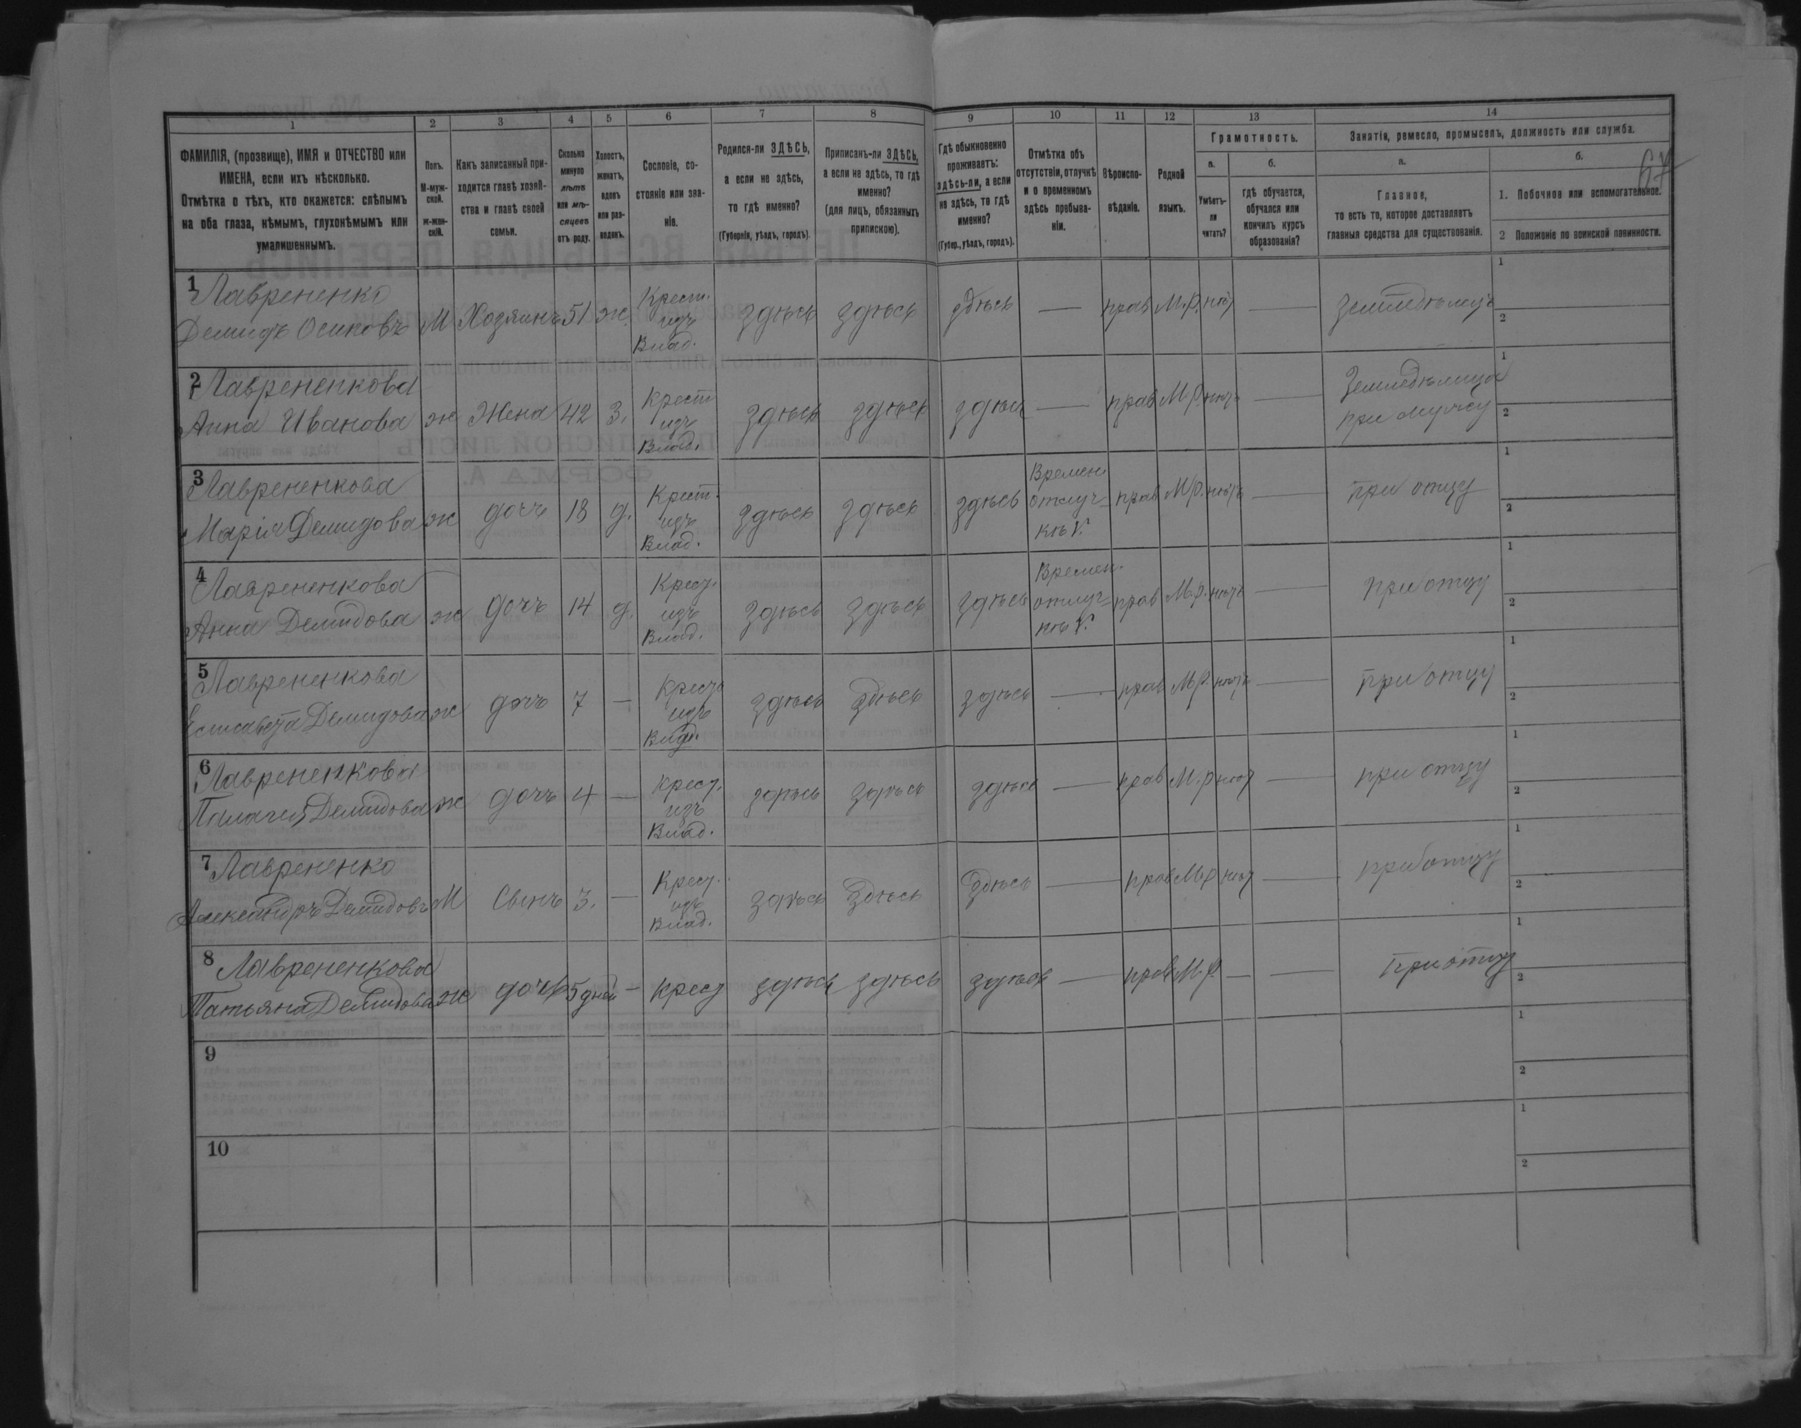 67
1 2 3 4 5 6 7 8 9 10 11 12 13 14
ФАМИЛІЯ, (прозвище), ИМЯ и ОТЧЕСТВО или ИМЕНА, если ихъ нѣсколько.
Отмѣтка о тѣхъ, кто окажется: слѣпымъ на оба глаза, нѣмымъ, глухонѣмымъ или умалишеннымъ.
Полъ.
М-мужской.
ж-женскій.
Какъ записанный приходится главѣ хозяйства и главѣ своей семьи.
Сколько минуло лѣтъ или мѣсяцевъ отъ роду.
Холостъ, женатъ, вдовъ или разведенъ.
Сословіе, состояніе или званіе.
Родился-ли ЗДѢСЬ, а если не здѣсь, то гдѣ именно?
(Губернія, уѣздъ, городъ).
Приписанъ-ли ЗДѢСЬ, а если не здѣсь, то гдѣ именно?
(для лицъ, обязанныхъ припискою).
Гдѣ обыкновенно проживаетъ: здѣсь-ли, а если не здѣсь, то гдѣ именно?
(Губер., уѣздъ, городъ).
Отмѣтка объ отсутствіи, отлучкѣ и о временномъ здѣсь пребываніи.
Вѣроисповѣданіе.
Родной языкъ.
Грамотность.
а.
Умѣетъ-ли читать?
б.
гдѣ обучается, обучался или кончилъ курсъ образованія?
Занятія, ремесло, промыселъ, должность или служба.
а.
Главное,
то есть то, которое доставляетъ главныя средства для существованія.
б.
1. Побочное или вспомогательное.
2 Положеніе по воинской повинности.
1 Лаврененко
Демидъ Осиповъ М Хозяинъ 51 ж. Крест. изъ Влад. здѣсь здѣсь здѣсь — прав М.р. нѣт — Земледѣлецъ 1 2
2 Лаврененкова
Анна Иванова ж Жена 42 з. Крест изъ Влад. здѣсь здѣсь здѣсь — прав М.р нѣтъ — Земледѣлица при мужу 1 2
3 Лаврененкова
Марія Демидова ж дочь 18 д. Крест. изъ Влад. здѣсь здѣсь здѣсь Времен. отлуч- прав М.р. нѣтъ — при отцу 1 2
4 Лаврененкова
Анна Демидова ж дочь 14 д. Крест. изъ Влад. здѣсь здѣсь здѣсь Времен. отлуч- прав М.р. нѣтъ — при отцу 1 2
5 Лаврененкова
Елисавета Демидова ж дочь 7 — Крест. изъ Влад. здѣсь здѣсь здѣсь — прав М.р. нѣтъ — при отцу 1 2
6 Лаврененкова
Пелагея Демидова ж дочь 4 — Крест. изъ Влад. здѣсь здѣсь здѣсь — прав М.р нѣт — при отцу 1 2
7 Лаврененко
Александръ Демидовъ М Сынъ 3. — Крест. изъ Влад. здѣсь здѣсь здѣсь — прав М.р нѣт — при отцу 1 2
8 Лаврененкова
Татьяна Демидова ж дочь 5 дней — Крест здѣсь здѣсь здѣсь — прав М.р — — при отцу 1 2
9 1 2
10 1 2